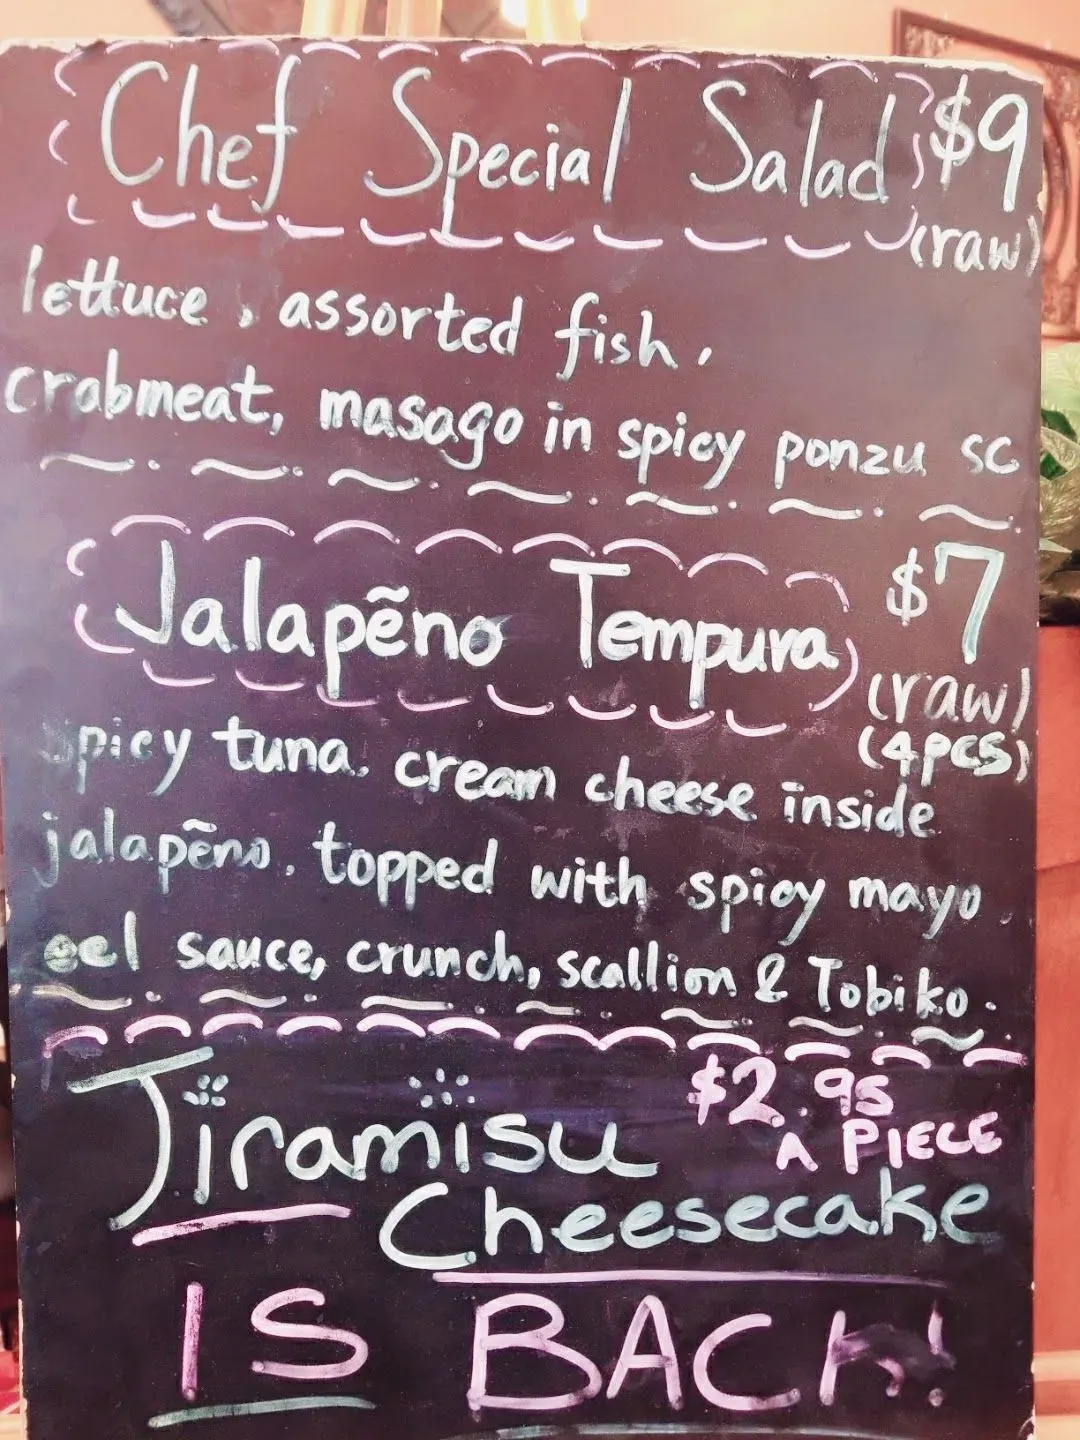 Chef Special Salad $9
(raw)
lettuce, assorted fish,
crabmeat, masago in spicy ponzu sc
Jalapẽno Tempura $7
(raw)
(4pcs)
spicy tuna, cream cheese inside
jalapẽno, topped with spicy mayo
eel sauce, crunch, scallion & Tobiko.
$2.95
A PIECE
Tiramisu
Cheesecake
IS BACK!